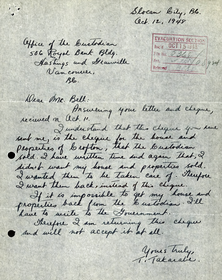 Slocan City, B.C.
Oct. 12, 1948
EVACUATION SECTION
OCT 15
Office of the Custodian
506 Royal Bank Bldg.
Hastings and Granville
Vancouver,
B.C.
Dear Mr. Bell:
Answering your letter and cheque,
recieved on Oct. 11.
I understand that this cheque you have
sent me, is the cheque for the home and
properties of Crofton, that the Custodian
sold. I have written time and again that, I
didn't want my home and properties sold,
I wanted them to be taken care of. Therefore
I want them back instead of this cheque.
If it is impossible to get my home and
properties back from the Custodian. I'll
have to write to the Government.
Therefore I am returning this cheque
and will not accept it at all.
Yours truly,
T. Takasaki.